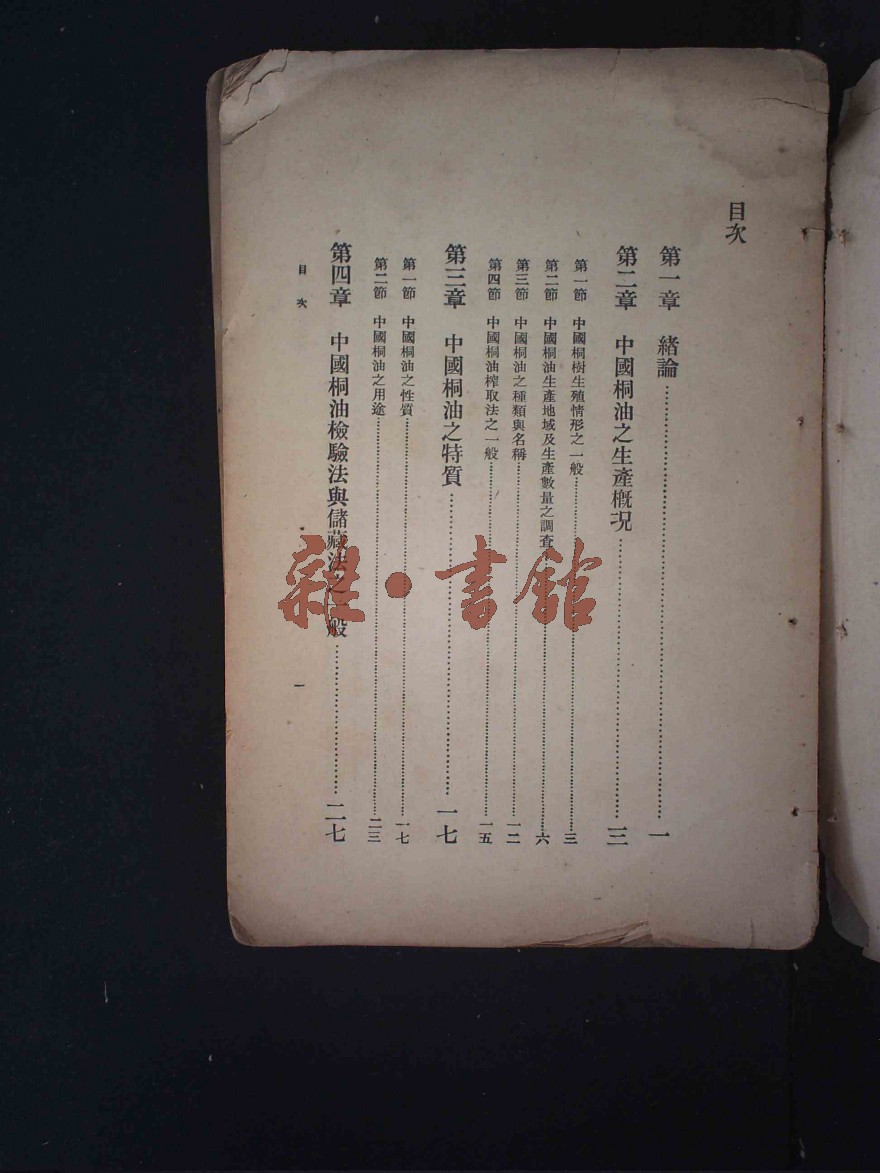 目次
第一章　緒論……………一
第二章　中國桐油之生產概況……………三
第一節　中國桐樹生殖情形之一般……………三
第二節　中國桐油生產地域及生產數量之調查……………六
第三節　中國桐油之種類與名稱……………一二
第四節　中國桐油榨取法之一般……………一五
第三章　中國桐油之特質……………一七
第一節　中國桐油之性質……………一七
第二節　中國桐油之用途……………二三
第四章　中國桐油檢驗法與儲藏法之一般……………二七
目次
一
雜·書館